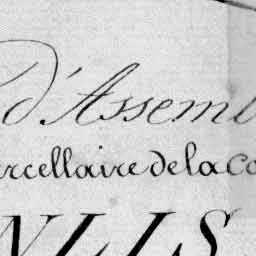 d'Assemb
rcellaire de la Co
NLIS